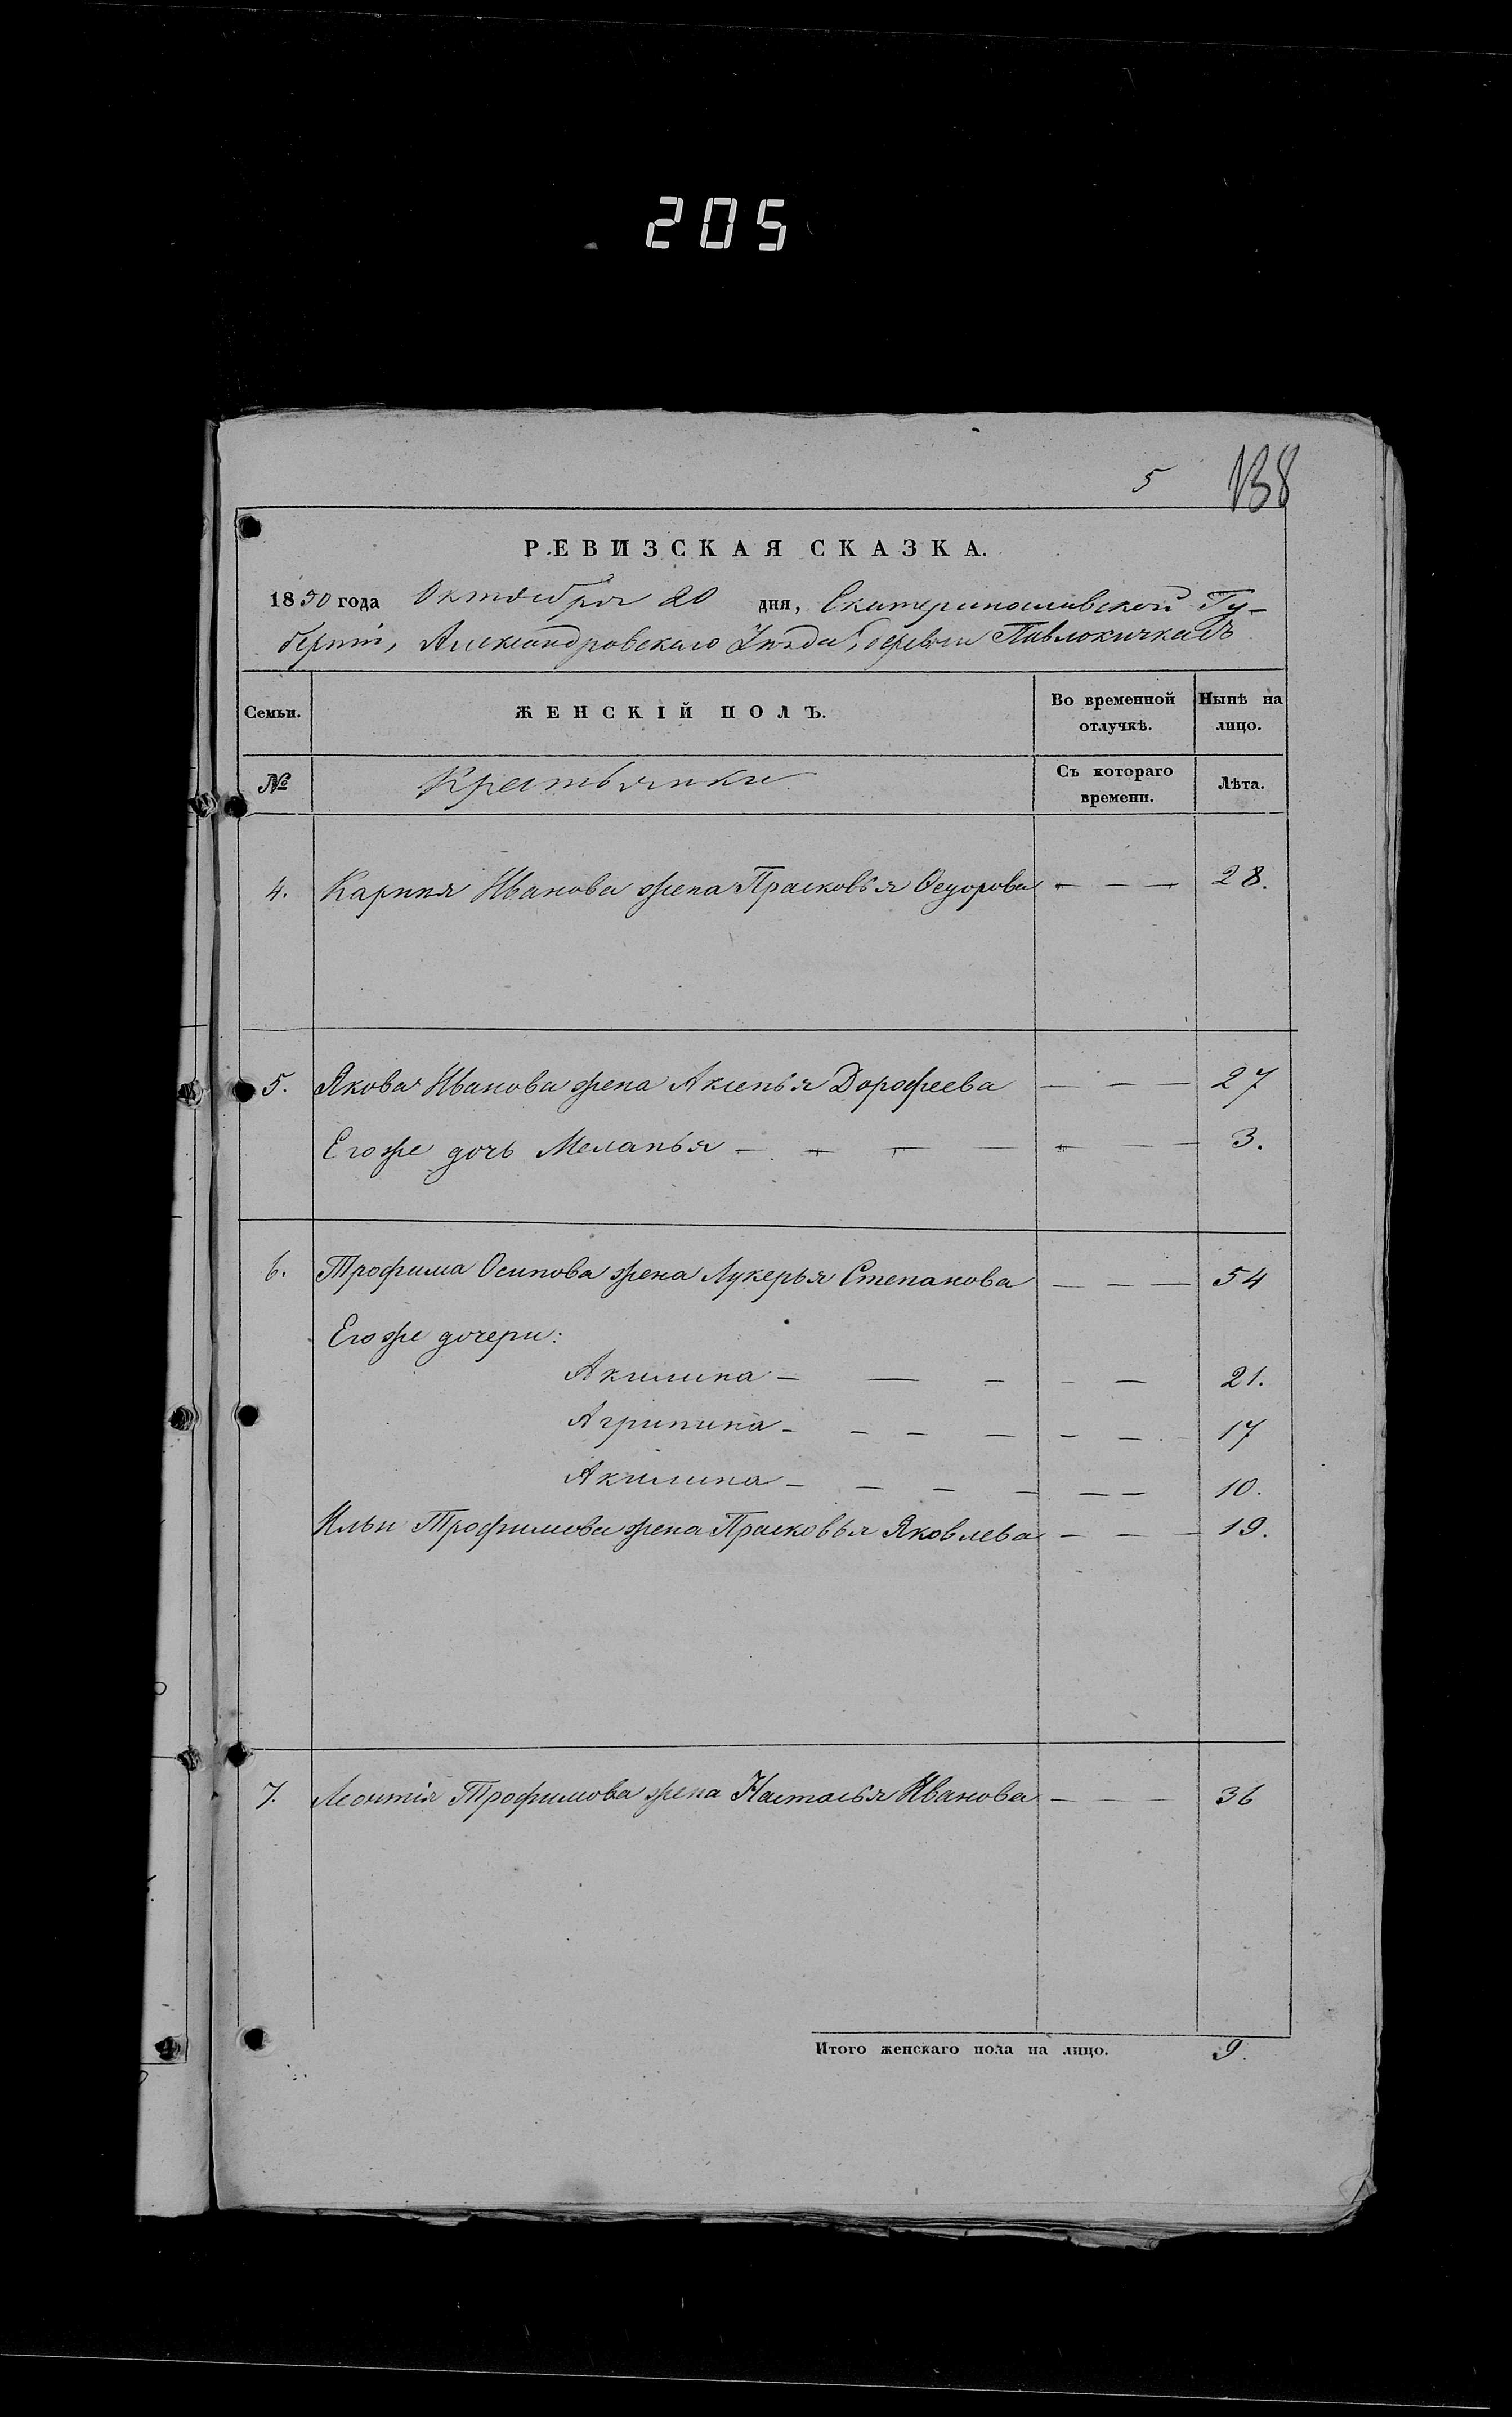 205
5 138
РЕВИЗСКАЯ СКАЗКА.
1850 года Октября 20 дня, Екатеринославской Гу-
берніи, Александровскаго Уѣзда, деревни Павлокичкасъ
Семьи. ЖЕНСКІЙ ПОЛЪ. Во временной отлучкѣ. Нынѣ на лицо.
№ Крестьянки Съ котораго времени. Лѣта.
4. Карпия Иванова жена Прасковья Ѳедорова - - - 28.
5. Якова Иванова жена Аксенья Дорофеева - - - 27
Его же дочь Меланья - - - - - - - 3.
6. Трофима Осипова жена Лукерья Степанова - - - 54
Его же дочери:
Акилина - - - - - 21.
Агрипина - - - - - - 17
Акилина - - - - - - 10.
Ильи Трофимова жена Прасковья Яковлева - - - 19.
7. Леонтія Трофимова жена Настасья Иванова - - - 36
Итого женскаго пола на лицо. 9.